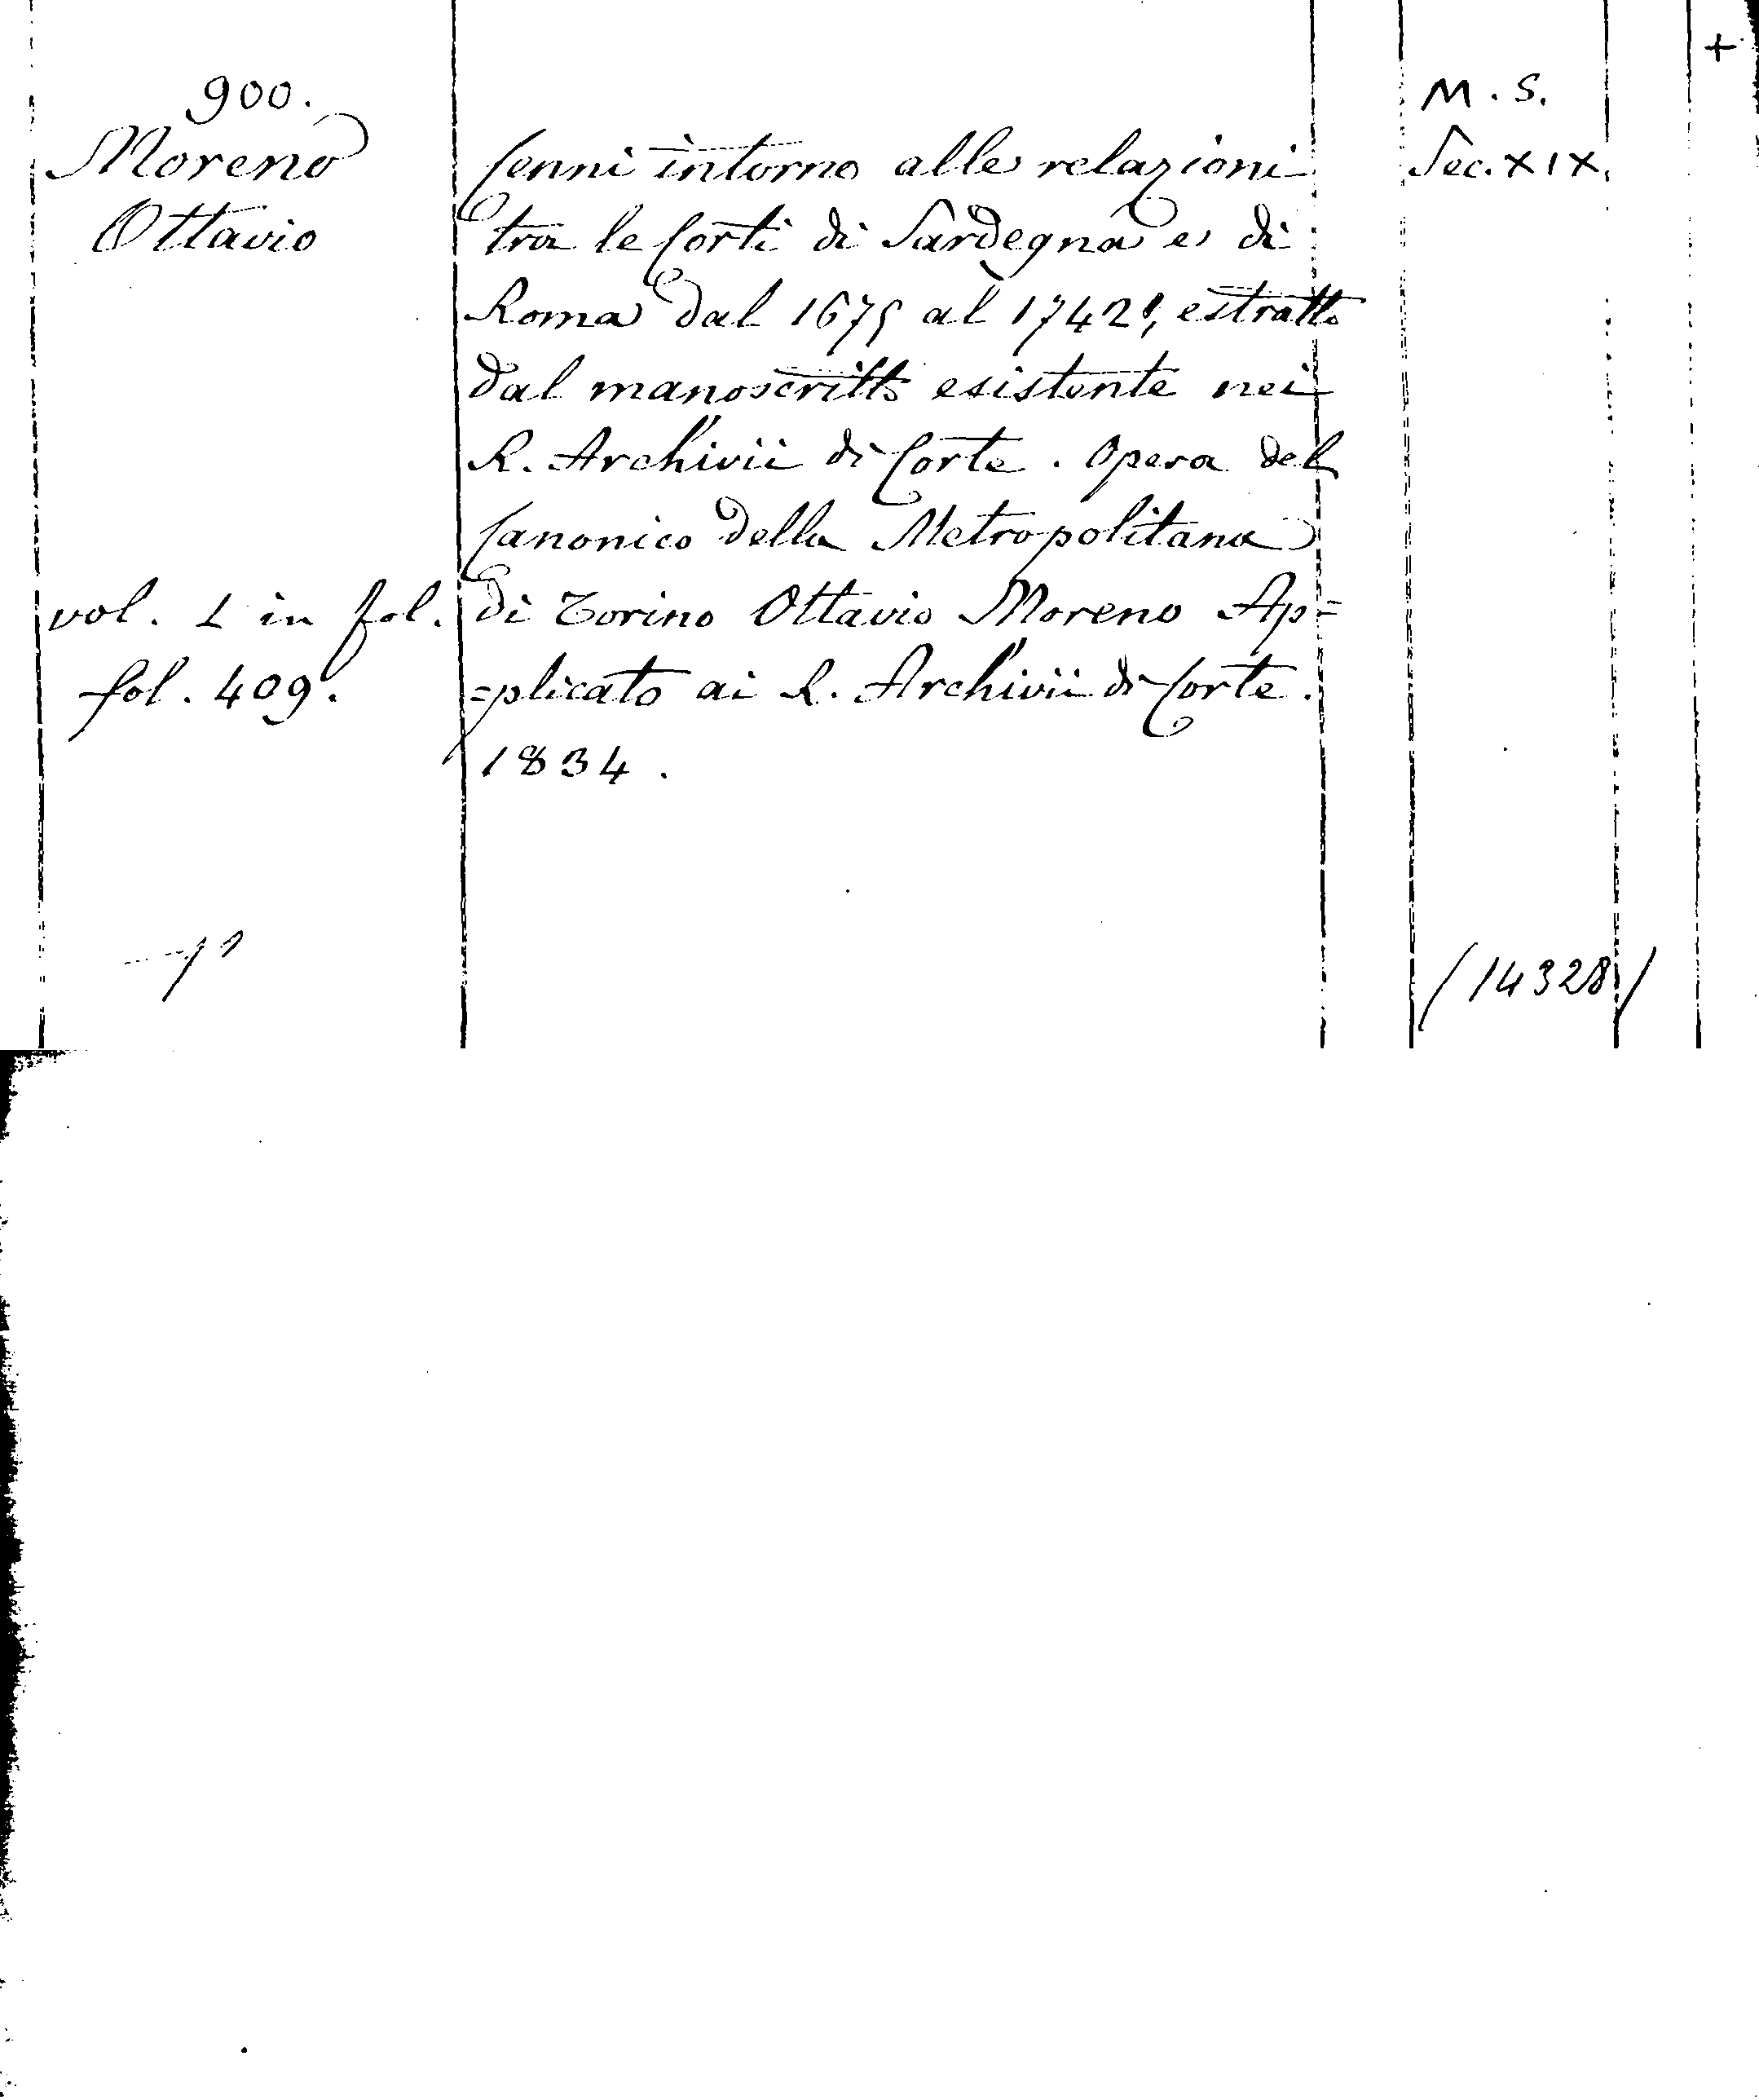 +
900.
Moreno
Ottavio
vol. 1 in fol.
fol. 409.
Cenni intorno alle relazioni
tra le Corti di Sardegna e di
Roma dal 1675 al 1742, estratto
dal manoscritto esistente nei
R. Archivii di Corte. Opera del
Canonico della Metropolitana
di Torino Ottavio Moreno Ap=
=plicato ai R. Archivii di Corte.
1834.
M. S.
Sec. XIX.
(14328)